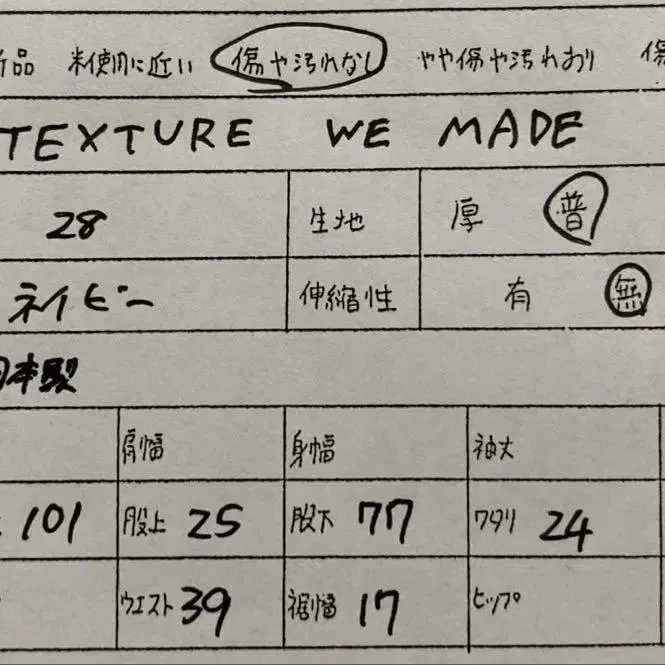 新品 未使用に近い 傷や汚れなし やや傷や汚れあり 傷
TEXTURE WE MADE
28 生地 厚 普
ネイビー 伸縮性 有 無
日本製
肩幅 身幅 袖丈
101 股上 25 股下 77 ワタリ 24
ウエスト 39 裾幅 17 ヒップ